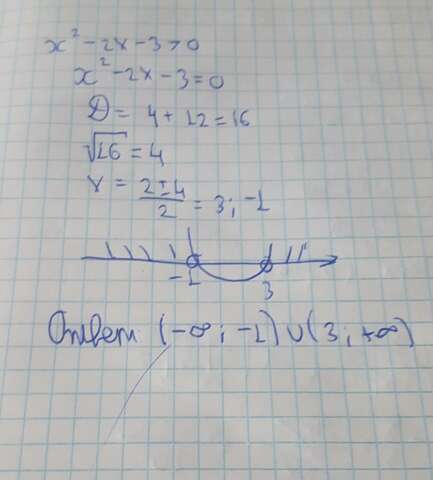 x² - 2x - 3 > 0
x² - 2x - 3 = 0
D = 4 + 12 = 16
√16 = 4
x = (2 ± 4)/2 = 3; -1
-1 3
Ответ (-∞; -1) ∪ (3; +∞)